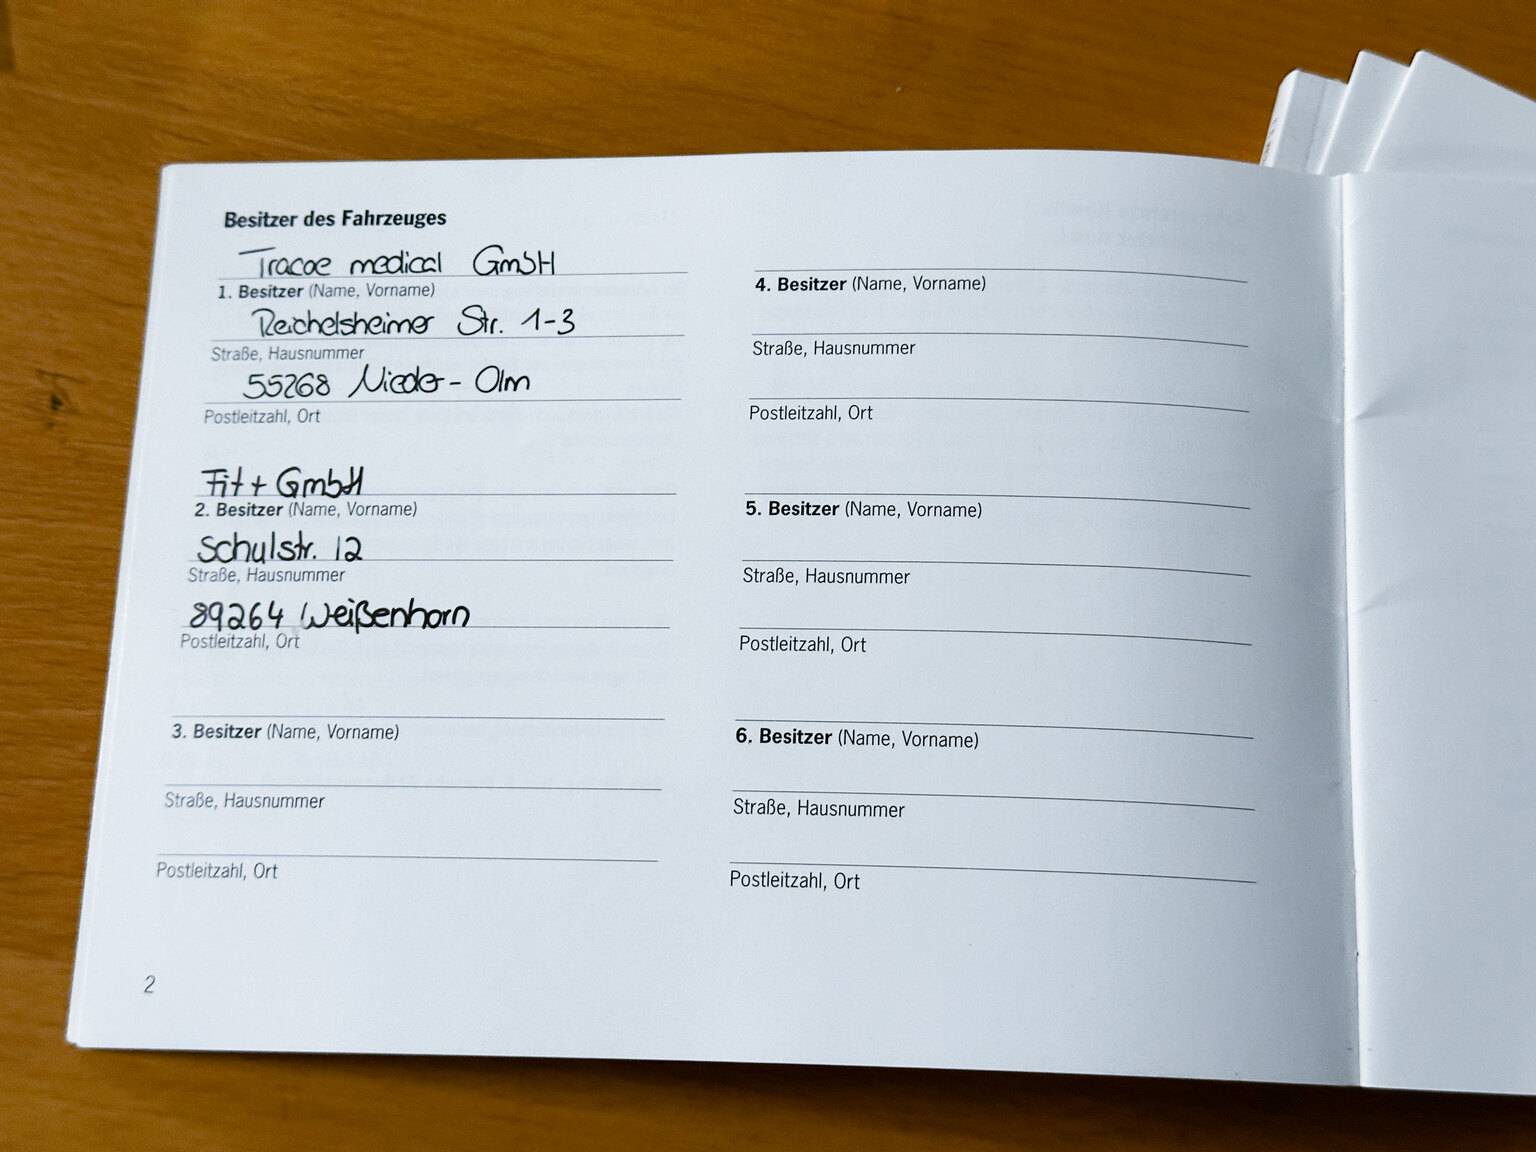 Besitzer des Fahrzeuges
Tracoe medical GmbH
1. Besitzer (Name, Vorname)
Reichelsheimer Str. 1-3
Straße, Hausnummer
55268 Nieder-Olm
Postleitzahl, Ort
Fit+ GmbH
2. Besitzer (Name, Vorname)
Schulstr. 12
Straße, Hausnummer
89264 Weißenhorn
Postleitzahl, Ort
3. Besitzer (Name, Vorname)
Straße, Hausnummer
Postleitzahl, Ort
4. Besitzer (Name, Vorname)
Straße, Hausnummer
Postleitzahl, Ort
5. Besitzer (Name, Vorname)
Straße, Hausnummer
Postleitzahl, Ort
6. Besitzer (Name, Vorname)
Straße, Hausnummer
Postleitzahl, Ort
2